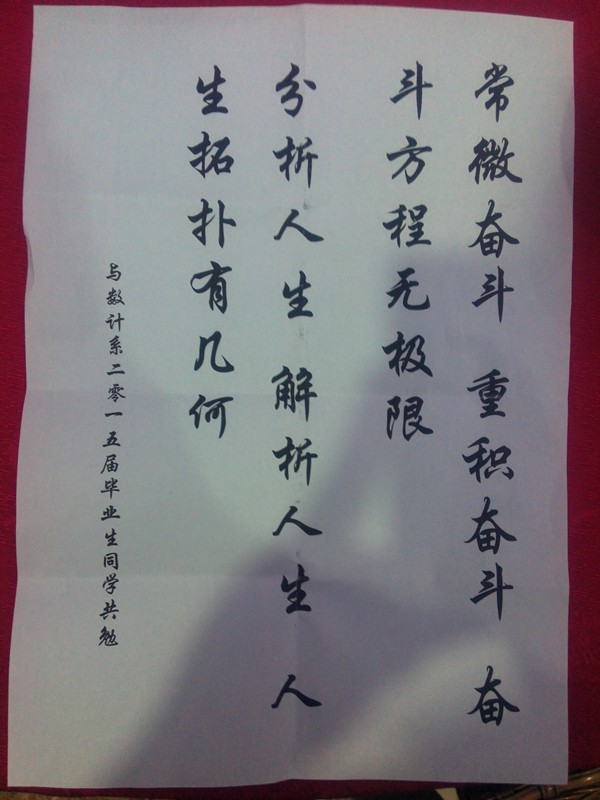 常微奋斗 重积奋斗 奋
斗方程无极限
分析人生 解析人生 人
生拓扑有几何
与数计系二零一五届毕业生同学共勉